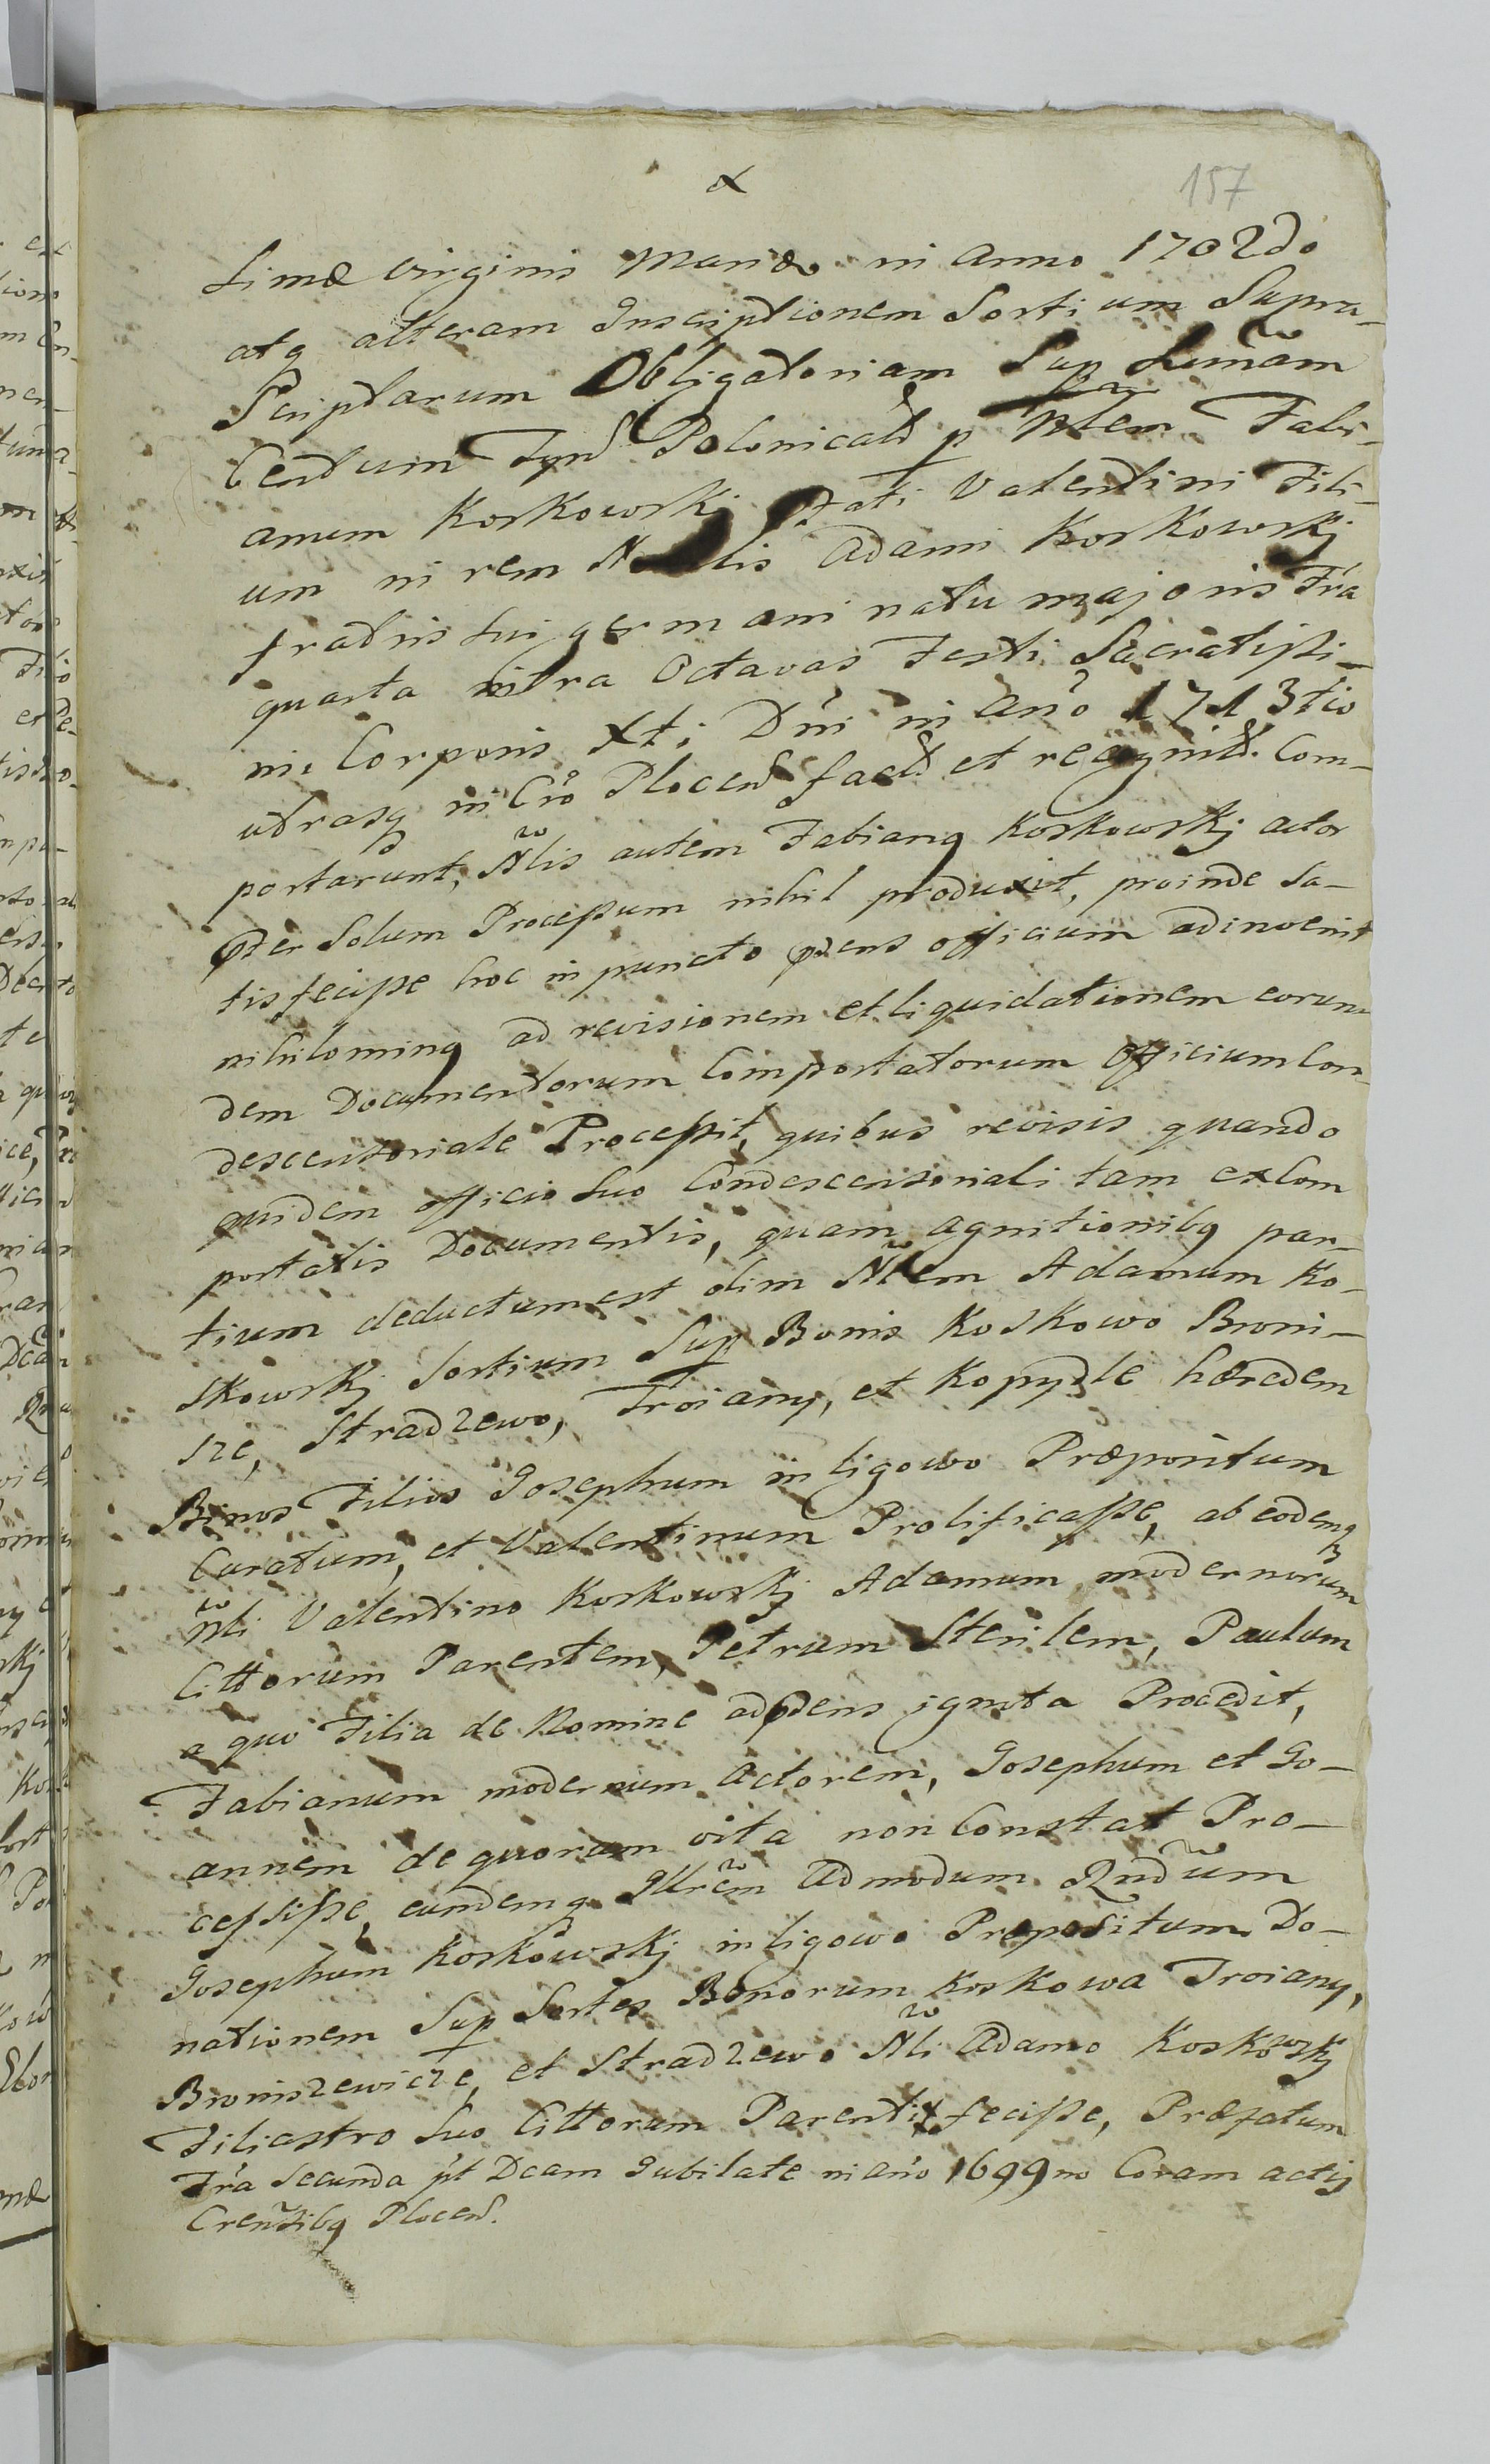 157
simæ Virginis Mariæ in Anno 1702do
atq alteram Inscriptionem Sortium Supra-
Scriptarum Obligatoriam Sup Sumam
Centum Tynf Polonicald p Nlem Fabi-
anum Koskowskj Valentini Fili-
um in rem Nlis Adami Koskowskj
fratris sui germani natu majoris Fra
quarta infra Octavas Festi Sacratissi-
mi Corporis Xti Dni in Ano 1713tio
utrasq in Cro Plocen fact et recognit. Com-
portarunt, Nlis autem Fabianq Koskowskj actor
pter Solum Processum nihil produxit, proinde Sa-
tisfecisse hoc in puncto pdens officium adinvenit
nihilominq ad revisionem et liquidationem eorun-
dem Documentorum Comportatorum Officium Con-
descensoriale Processit, quibus revisis quando
quidem officio suo Condescensoriali tam ex Com
portatis Documentis, quam agnitionibq par-
tium deductum est olim Nlem Adamum Ko-
skowskj Sortium Sup Bonis Koskowo Broni-
sze, Stradzewo, Troiany, et Kopydle hæredem
Binos Filios Josephum in Ligowo Præpositum
Curatum, et Valentinum Prolificasse, ab eodemq
Nli Valentino Koskowskj Adamum modernorum
Cittorum Parentem, Petrum Sterilem, Paulum
a quo Filia de Nomine adpdens ignota Procedit,
Fabianum modernum Actorem, Josephum et Jo-
annem de quorum vita non Constat Pro-
cessisse, eundemq Illrem Admodum Rndum
Josephum Koskowskj in Ligowo Præpositum Do-
nationem Sup Sortes Bonorum Koskowa Troiany,
Broniszewicze, et Stradzewo Nli Adamo Koskowskj
Filiastro Suo Cittorum Parenti fecisse, Præfatum
Fra Secunda pt Dcam Jubilate in ano 1699no Coram actis
Crensibq Plocen.